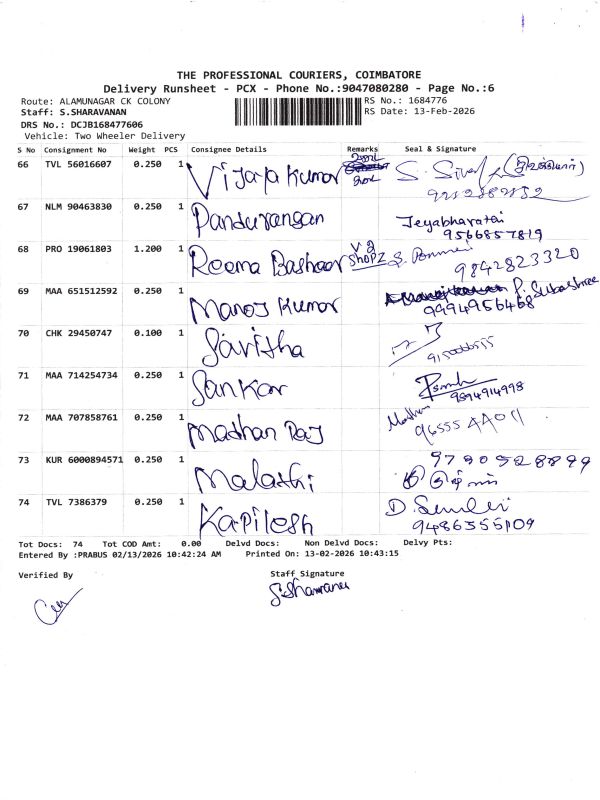 THE PROFESSIONAL COURIERS, COIMBATORE
Delivery Runsheet - PCX - Phone No.:9047080280 - Page No.:6
Route: ALAMUNAGAR CK COLONY RS No.: 1684776
Staff: S.SHARAVANAN RS Date: 13-Feb-2026
DRS No.: DCJB168477606
Vehicle: Two Wheeler Delivery
S No Consignment No Weight PCS Consignee Details Remarks Seal & Signature
66 TVL 56016607 0.250 1 Vijaya Kumar
67 NLM 90463830 0.250 1 Pandurangan Jeyabharathi
9566857819
68 PRO 19061803 1.200 1 Reema Bashaar V g Shopz
9842823320
69 MAA 651512592 0.250 1 Manoj Kumar P. Subashree
9994956468
70 CHK 29450747 0.100 1 Savitha
71 MAA 714254734 0.250 1 Sankar
9894914998
72 MAA 707858761 0.250 1 Madhan Raj Madhan
73 KUR 6000894571 0.250 1 Malathi
74 TVL 7386379 0.250 1 Kapilesh
Tot Docs: 74 Tot COD Amt: 0.00 Delvd Docs: Non Delvd Docs: Delvy Pts:
Entered By :PRABUS 02/13/2026 10:42:24 AM Printed On: 13-02-2026 10:43:15
Verified By Staff Signature